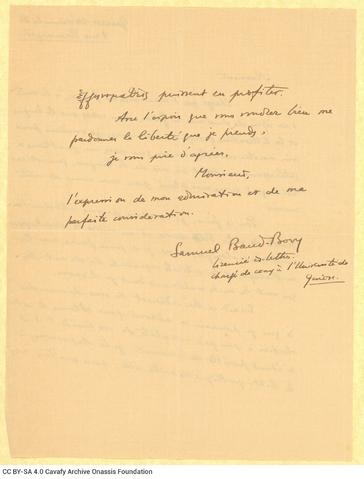 puissent en profiter.
Avec l'espoir que vous voudrez bien me
pardonner la liberté que je prends,
je vous prie d'agréer,
Monsieur,
l'expression de mon admiration et de ma
parfaite considération.
Samuel Baud-Bovy
licencié ès lettres.
chargé de cours à l'Université de
Genève.
CC BY-SA 4.0 Cavafy Archive Onassis Foundation